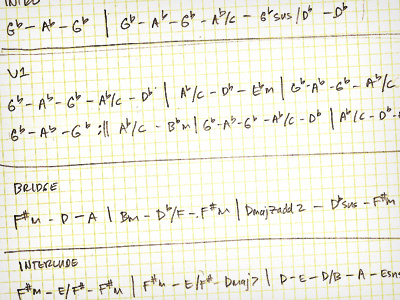 INTRO
G♭ - A♭ - G♭ | G♭ - A♭ - G♭ - A♭/C - G♭sus/D♭ - D♭
V1
G♭ - A♭ - G♭ - A♭/C - D♭ | A♭/C - D♭ - E♭m | G♭ - A♭ - G♭ - A♭/C
G♭ - A♭ - G♭ :|| A♭/C - B♭m | G♭ - A♭ - G♭ - A♭/C - D♭ | A♭/C - D♭ -
BRIDGE
F#m - D - A | Bm - D♭/F - F#m | Dmaj7add2 - D♭sus - F#m
INTERLUDE
F#m - E/F# - F#m | F#m - E/F# - Dmaj7 | D - E - D/B - A - Esus